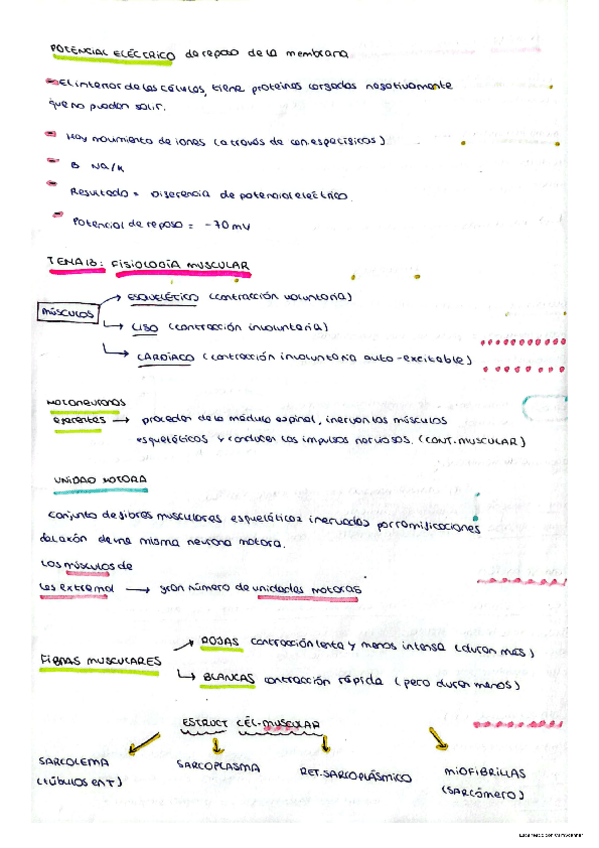 POTENCIAL ELÉCTRICO de reposo de la membrana
El interior de las células, tiene proteínas cargadas negativamente
que no pueden salir.
Hay movimiento de iones (a través de can. específicos)
B Na/K
Resultado = Diferencia de potencial eléctrico.
Potencial de reposo = -70 mV
TEMA 13: FISIOLOGÍA MUSCULAR
MÚSCULOS
ESQUELÉTICO (contracción voluntaria)
LISO (contracción involuntaria)
CARDÍACO (contracción involuntaria auto-excitable)
MOTONEURONAS
eferentes → proceden de la médula espinal, inervan los músculos
esqueléticos y conducen los impulsos nerviosos. (CONT. MUSCULAR)
UNIDAD MOTORA
Conjunto de fibras musculares esqueléticas inervadas por ramificaciones
del axón de una misma neurona motora.
Los músculos de
las extremd → gran número de unidades motoras
FIBRAS MUSCULARES
ROJAS contracción lenta y menos intensa (duran más)
BLANCAS contracción rápida (pero duran menos)
ESTRUCT CÉL-MUSCULAR
SARCOLEMA
(túbulos en T)
SARCOPLASMA
RET. SARCOPLÁSMICO
MIOFIBRILLAS
(sarcómero)